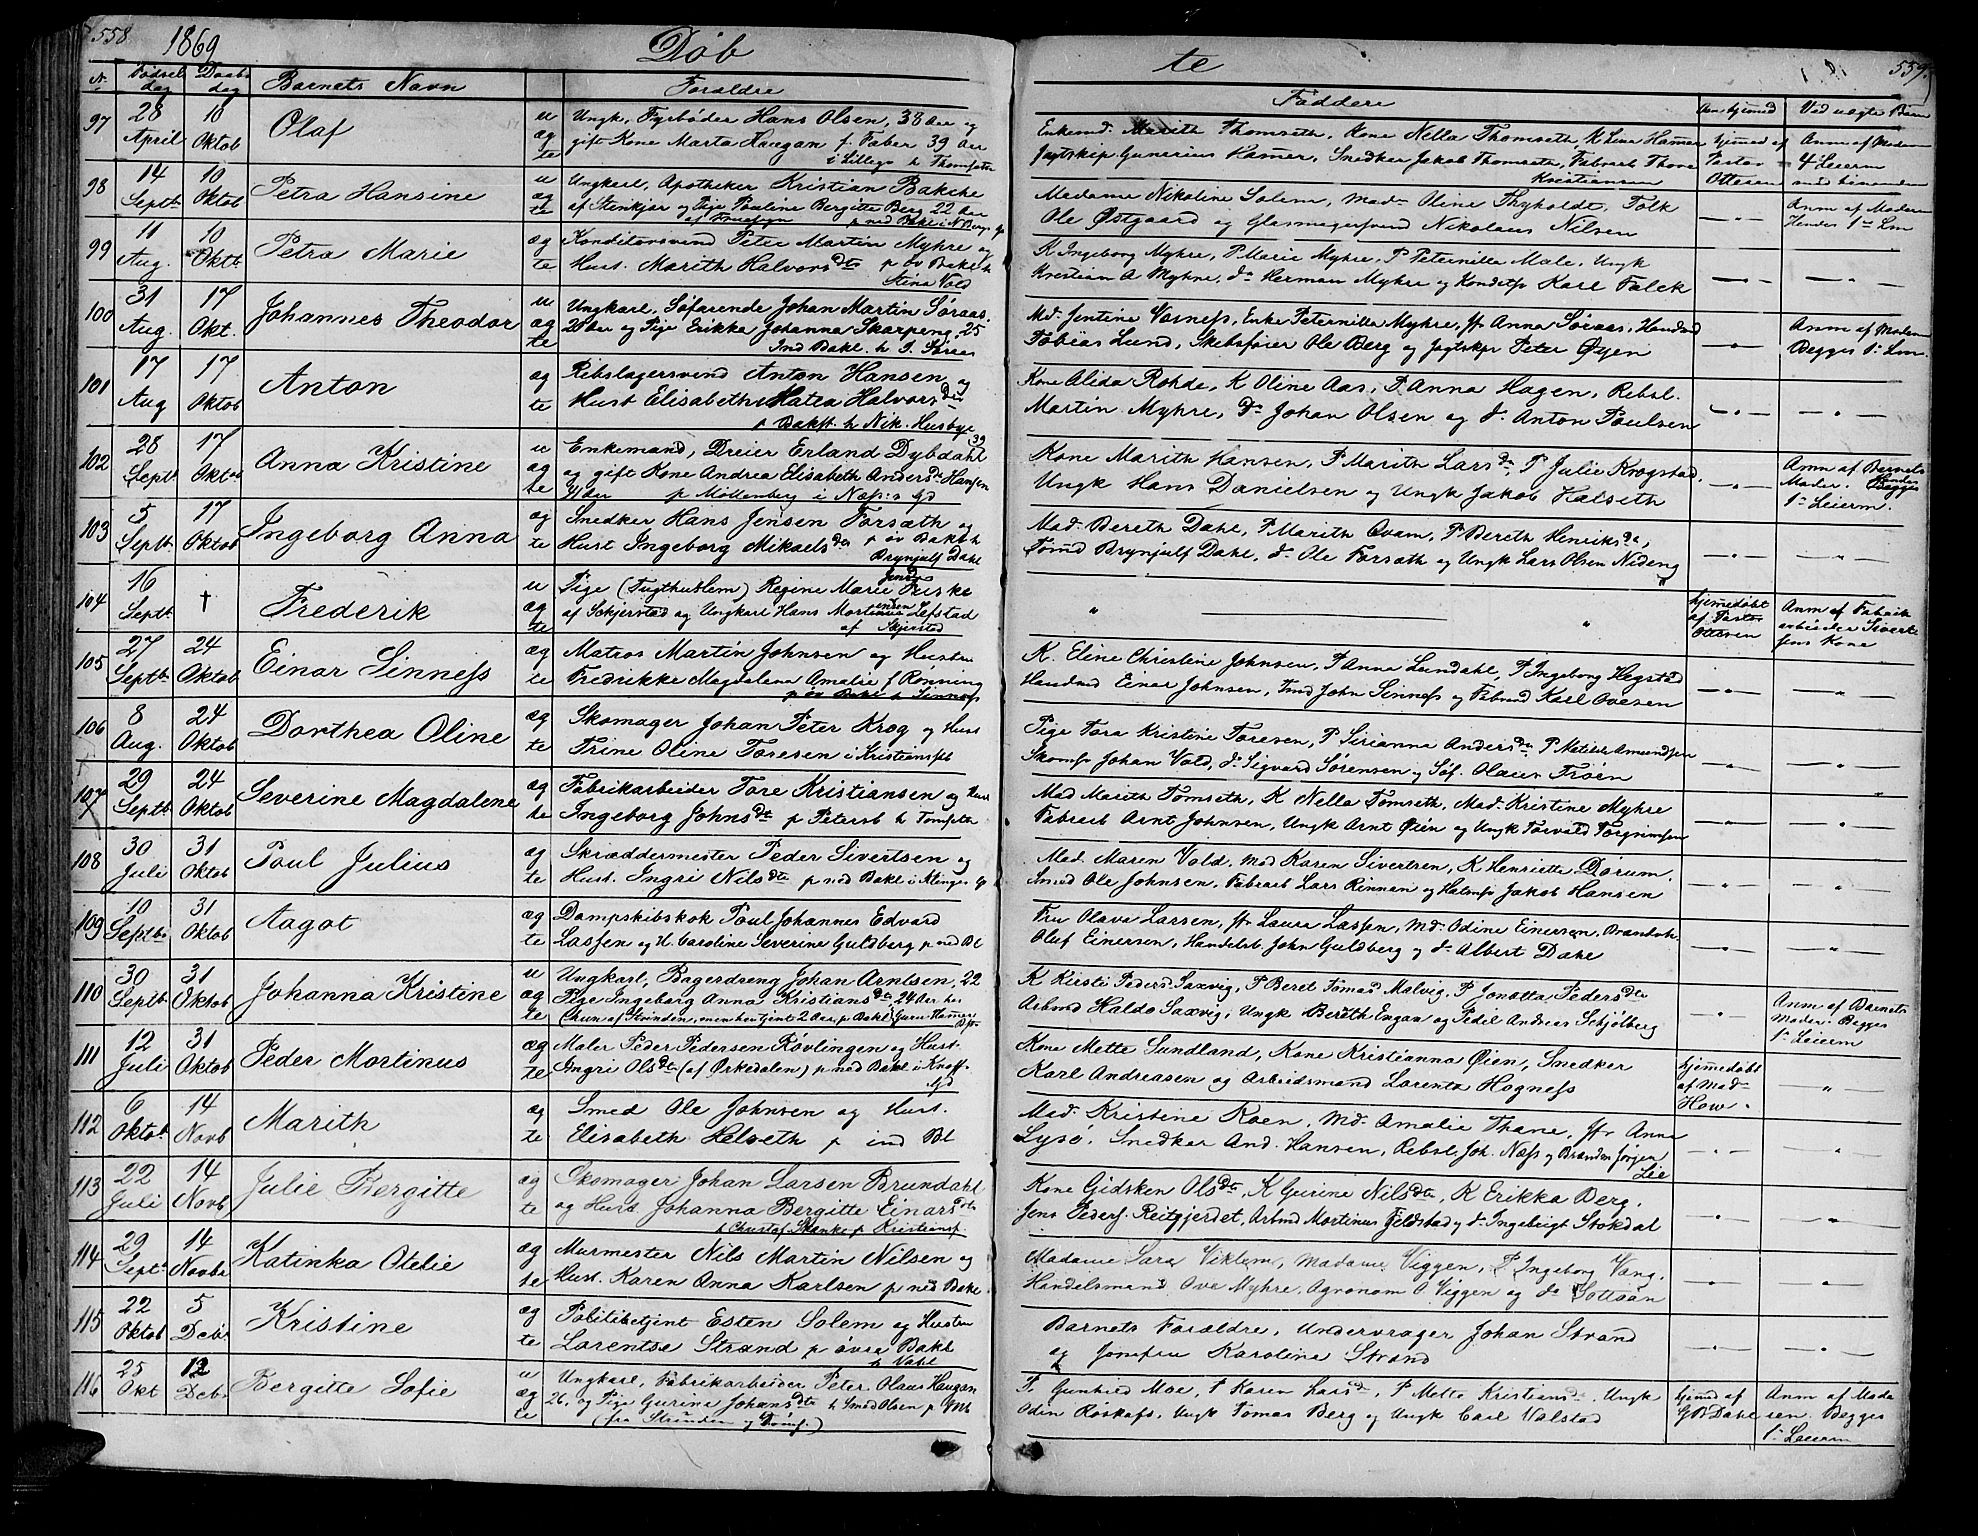 558 1869 Døb
te 559
N. Fødsels dag Daabs dag Barnets Navn Foraldre
Faddere Om hjemmed Ved uægte Børn
97 28 April 10 Oktob Olaf u æg te Ungk, Fyrbøder Hans Olsen, 38 Aar og
gift Kone Marta Haugan f. Faber 39 Aar
i Lillegd h Thomseth
Enkemd. Marith Thomseth, Kone Nella Thomseth, K Lina Hamer
Jagtskip Gunerius Hamer, Snedker Jakob Thomseth, Fabrarb Thore
Kristiansen
hjemmed af Pastor Ottesen
Anm af Madam
4 Leierm
98 14 Septb. 10 Oktob Petra Hansine u æg te Ungkarl, Apotheker Kristian Bakche
af Stenkjær og Pige Pauline Bergitte Berg 22 Aar
p ned Bakl i N Bergs Gd
Madame Nikoline Solem, Mad. Oline Thyholdt, Folk
Ole Østgaard og Glasmagersvend Nikolaus Nilsen
— " —
Anm af Moderen
Hendes 1ste Lm
99 11 Aug. 10 Oktb. Petra Marie æg te Konditorsvend Peter Martin Myhre og
Hust. Marith Halvorsdtr p øv Bakl h
Stina Vold
K Ingeborg Myhre, P Marie Myhre, P Peternille Male, Ungk
Kristian A Myhre, do Herman Myhre og Konditsv Karl Falck
— " — — " —
100 31 Aug. 17 Okt. Johannes Theodor u æg te Ungkarl, Søfarende Johan Martin Søraas,
28 Aar og Pige Erikka Johanna Skarpeng, 25
Ind Bakl. h J. Søraas
Md. Jentine Værness, Enke Peternille Myhre, Fr Anna Søraas, Handsmd
Tobias Lund, Skibsfører Ole Berg og Jagtskpr Peter Øyen
— " —
Anm af Moderen
Begges 1s Lm.
101 17 Aug 17 Oktob Anton æg te Rebslagersvend Anton Hansen og
Hust Elisabeth Matea Halvorsdtr
p Bakl. h Nik. Husbye
Kone Alida Rohde, K Oline Aas, P Anna Hagen, Rebsl.
Martin Myhre, do Johan Olsen og d. Anton Poulsen
— " — — " —
102 28 Septb. 17 Oktob Anna Kristine u æg te Enkemand, Dreier Erland Dybdahl 39
og gift Kone Andrea Elisabeth Andersdtr Hansen
41 Aar p Møllenberg i Næss's Gd
Kone Marith Hansen, P Marith Larsdtr, P Julie Krogstad,
Ungk Hans Danielsen og Ungk Jakob Halseth
— " —
Anm af Barnets
Moder. Begges
1s Leierm.
103 5 Septb. 17 Oktob Ingeborg Anna æg te Snedker Hans Jensen Forsæth og
Hust Ingeborg Mikaelsdtr p øv Bakl h
Brynjulf Dahl
Mad. Bereth Dahl, P Marith Qvam, P Bereth Henriksdtr,
Tømmd Brynjulf Dahl, do Ole Forsæth og Ungk Lars Olsen Nideng
— " — — " —
104 16 Septb. † Frederik u æg te Pige (Tugthuslem) Regine Marie Jensd Friske
af Skjerstad og Ungkarl Hans Mortinussen Løfstad
af Skjerstad
" — "
hjemmedøbt
af Pastor
Ottesen
Anm af Fabrik
arbeider Sivert
sens Kone
105 27 Septb. 24 Oktob Einar Sinness æg te Matros Martin Johnsen og Hustru
Fredrikke Magdalena Amalie f Rønning
p øv Bakl h Sinness
K. Eline Christine Johnsen, P Anna Lundahl, P Ingeborg Hegstad
Handsmd Einar Johnsen, Tmd John Sinness og Fabmd Karl Ovesen
— " — — " —
106 8 Aug. 24 Oktob Dorthea Oline æg te Skomager Johan Peter Krog og Hust
Trine Oline Toresen i Kristianst
Pige Tora Kristine Toresen, P Sirianna Andersdtr, P Matilde Amundsen
Skomsv Johan Vold, do Sigvard Sørensen og Søf. Olaus Trøen
107 29 Septb. 24 Oktob Severine Magdalene æg te Fabrikarbeider Tore Kristiansen og Hust
Ingeborg Johnsdtr p Petersb h Tomseth
Mad Marith Tomseth, K Nella Tomseth, Mad. Kristine Myhre
Fabrarb Arnt Johnsen, Ungk Arnt Øien og Ungk Torvald Torgrimsen
— " — — " —
108 30 Juli 31 Oktob Poul Julius æg te Skræddermester Peder Sivertsen og
Hust. Ingri Nilsdtr p ned Bakl i Klinges Gd
Mad. Maren Vold, Mad Karen Sivertsen, K Henriette Dørum.
Smed Ole Johnsen, Fabrarb Lars Rinnan og Hatmsv Jakob Hansen
— " — — " —
109 10 Septb. 31 Oktob Aagot æg te Dampskibskok Poul Johannes Edvard
Lassen og H. Caroline Severine Guldberg p ned Bl
Fru Olava Larsen, Fr Laura Lassen, Md. Odine Einersen, Brandvk.
Oluf Einersen, Handelsb. John Guldberg og do Albert Dahl
— " — "
110 30 Septb 31 Oktob Johanna Kristine u æg te Ungkarl, Bagerdreng Johan Arntsen, 22
Pige Ingeborg Anna Kristiansdtr 24 Aar hos
(Chun af Strinden, men her tjent 2 Aar, p Bakl (Guru Hamers
K Kirsti Pedersd Saxvig, P Beret Tomasd Malvig, P Jonetta Pedersdtr
Arbmd Haldo Saxvig, Ungk Bereth Engan og Pedel Andreas Schjølberg
— " —
Anm af Barnets
Moder. Begges
1s Leierm
111 12 Juli 31 Oktob Peder Mortinus æg te Maler Peder Pedersen Røvlingen og Hust.
Ingri Olsdtr (af Ørkedalen) p ned Bakl i Knoff
Gd
Kone Mette Sundland, Kone Kristianna Øien, Snedker
Karl Andreasen og Arbeidsmand Lorents Hogness
hjemmedøbt
af Mad.
How.
— " —
112 6 Oktob. 14 Novb Marith æg te Smed Ole Johnsen og Hust.
Elisabeth Helseth p ind Bl
Mad. Kristine Roen, Md. Amalie Thane, Fr Anna
Lysø, Snedker And. Hansen, Rebsl. Joh. Næss og Branden Jørgen
Lie
— " — "
113 22 Juli 14 Novb Julie Bergitte æg te Skomager Johan Larsen Brundahl
og Hust Johanna Bergitte Einarsdtr
f Christof. Blanke p Kristiansf.
Kone Gidsken Olsdtr, K Gurine Nilsdtr, K Erikka Berg,
Jens Peders. Reitgjerdet, Arbmd Mortinus Fjeldstad og do Ingebrigt Stokdal
— " — "
114 29 Sept. 14 Novbr Katinka Otelie æg te Murmester Nils Martin Nilsen og
Hust. Karen Anna Karlsen p ned Bakl.
Madame Sara Viklem, Madame Viggen, P Ingeborg Vang,
Handelsmand Ove Myhre, Agronom O Viggen og do Sottaan
— " — "
115 22 Oktob 5 Debr Kristine æg te Politibetjent Esten Solem og Hustru
Lorentse Strand p øvre Bakl
Barnets Foraldre, Undervrager Johan Strand
og Jomfru Karoline Strand
— " — — " —
116 25 Okt 12 Deb. Bergitte Sofie u æg te Ungkarl, Fabrikarbeider Peter Olaus Haugan
26, og Pige Gurine Johansdtr h Smed Olsen p
(fra Strinden og Tromsø)
P. Gunhild Moe, P Karen Larsd., P Mette Kristiansd. Ungk
Odin Røskafs, Ungk Tomas Berg og Ungk Carl Valstad
hjemmed af
G B Dahl
Anm af Mode
ren. Begges
1s Leierm